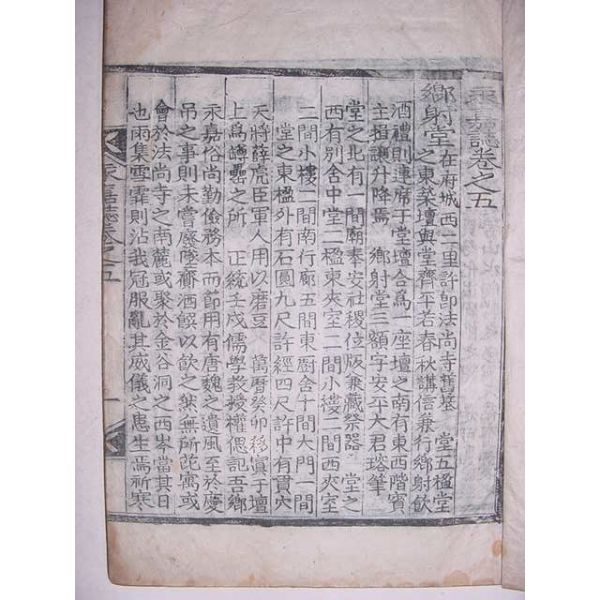 永嘉誌卷之五
鄕射堂 在府城西二里許卽法尚寺舊基 堂五楹堂
之東築壇與堂齊平若春秋講信兼行鄕射飮
酒禮則連席于堂壇合爲一座壇之南有東西階賓
主揖讓升降焉 鄕射堂三額字安平大君瑢筆
堂之北有一間廟奉安社稷位版兼藏祭器 堂之
西有別舍中堂二楹東夾室二間小樓二間西夾室
二間小樓二間南行廊五間東廚舍十間大門一間
堂之東楹外有石圓九尺許經四尺許中有貫穴
天將薛虎臣軍人用以磨豆 萬曆癸卯移寘于壇
上爲罇罍之所 正統壬戌儒學敎授權偲記吾鄕
永嘉俗尚勤儉務本而節用有唐魏之遺風至於慶
吊之事則未嘗廢墜齎酒饌以飮之然無所芘寓或
會於法尚寺之南麓或聚於金谷洞之西岑當其日
也雨集雪霏則沾我冠服亂其威儀之患生焉祈寒
永嘉誌卷之五
一